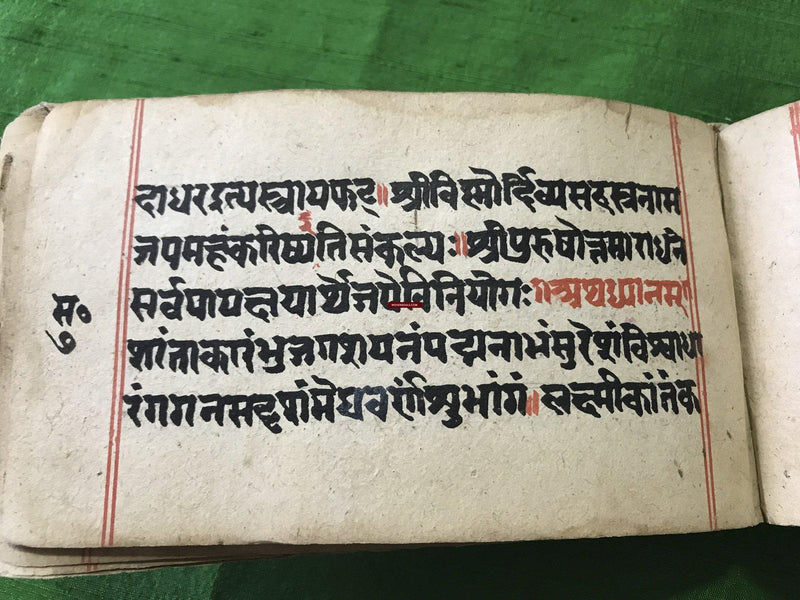 दाधरइत्यस्त्रायफट्॥श्रीविष्णोर्दिव्यसहस्त्रनाम
जपमहंकरिष्येतिसंकल्पः॥श्रीपुरुषोत्तमाराधने
सर्वपापक्षयार्थेजपेविनियोगः॥अथध्यानम्॥
शांताकारंभुजगशयनंपद्मनाभंसुरेशंविश्वाधा
रंगगनसदृशंमेघवर्णंशुभांगं॥लक्ष्मीकांतंक
स॰
७